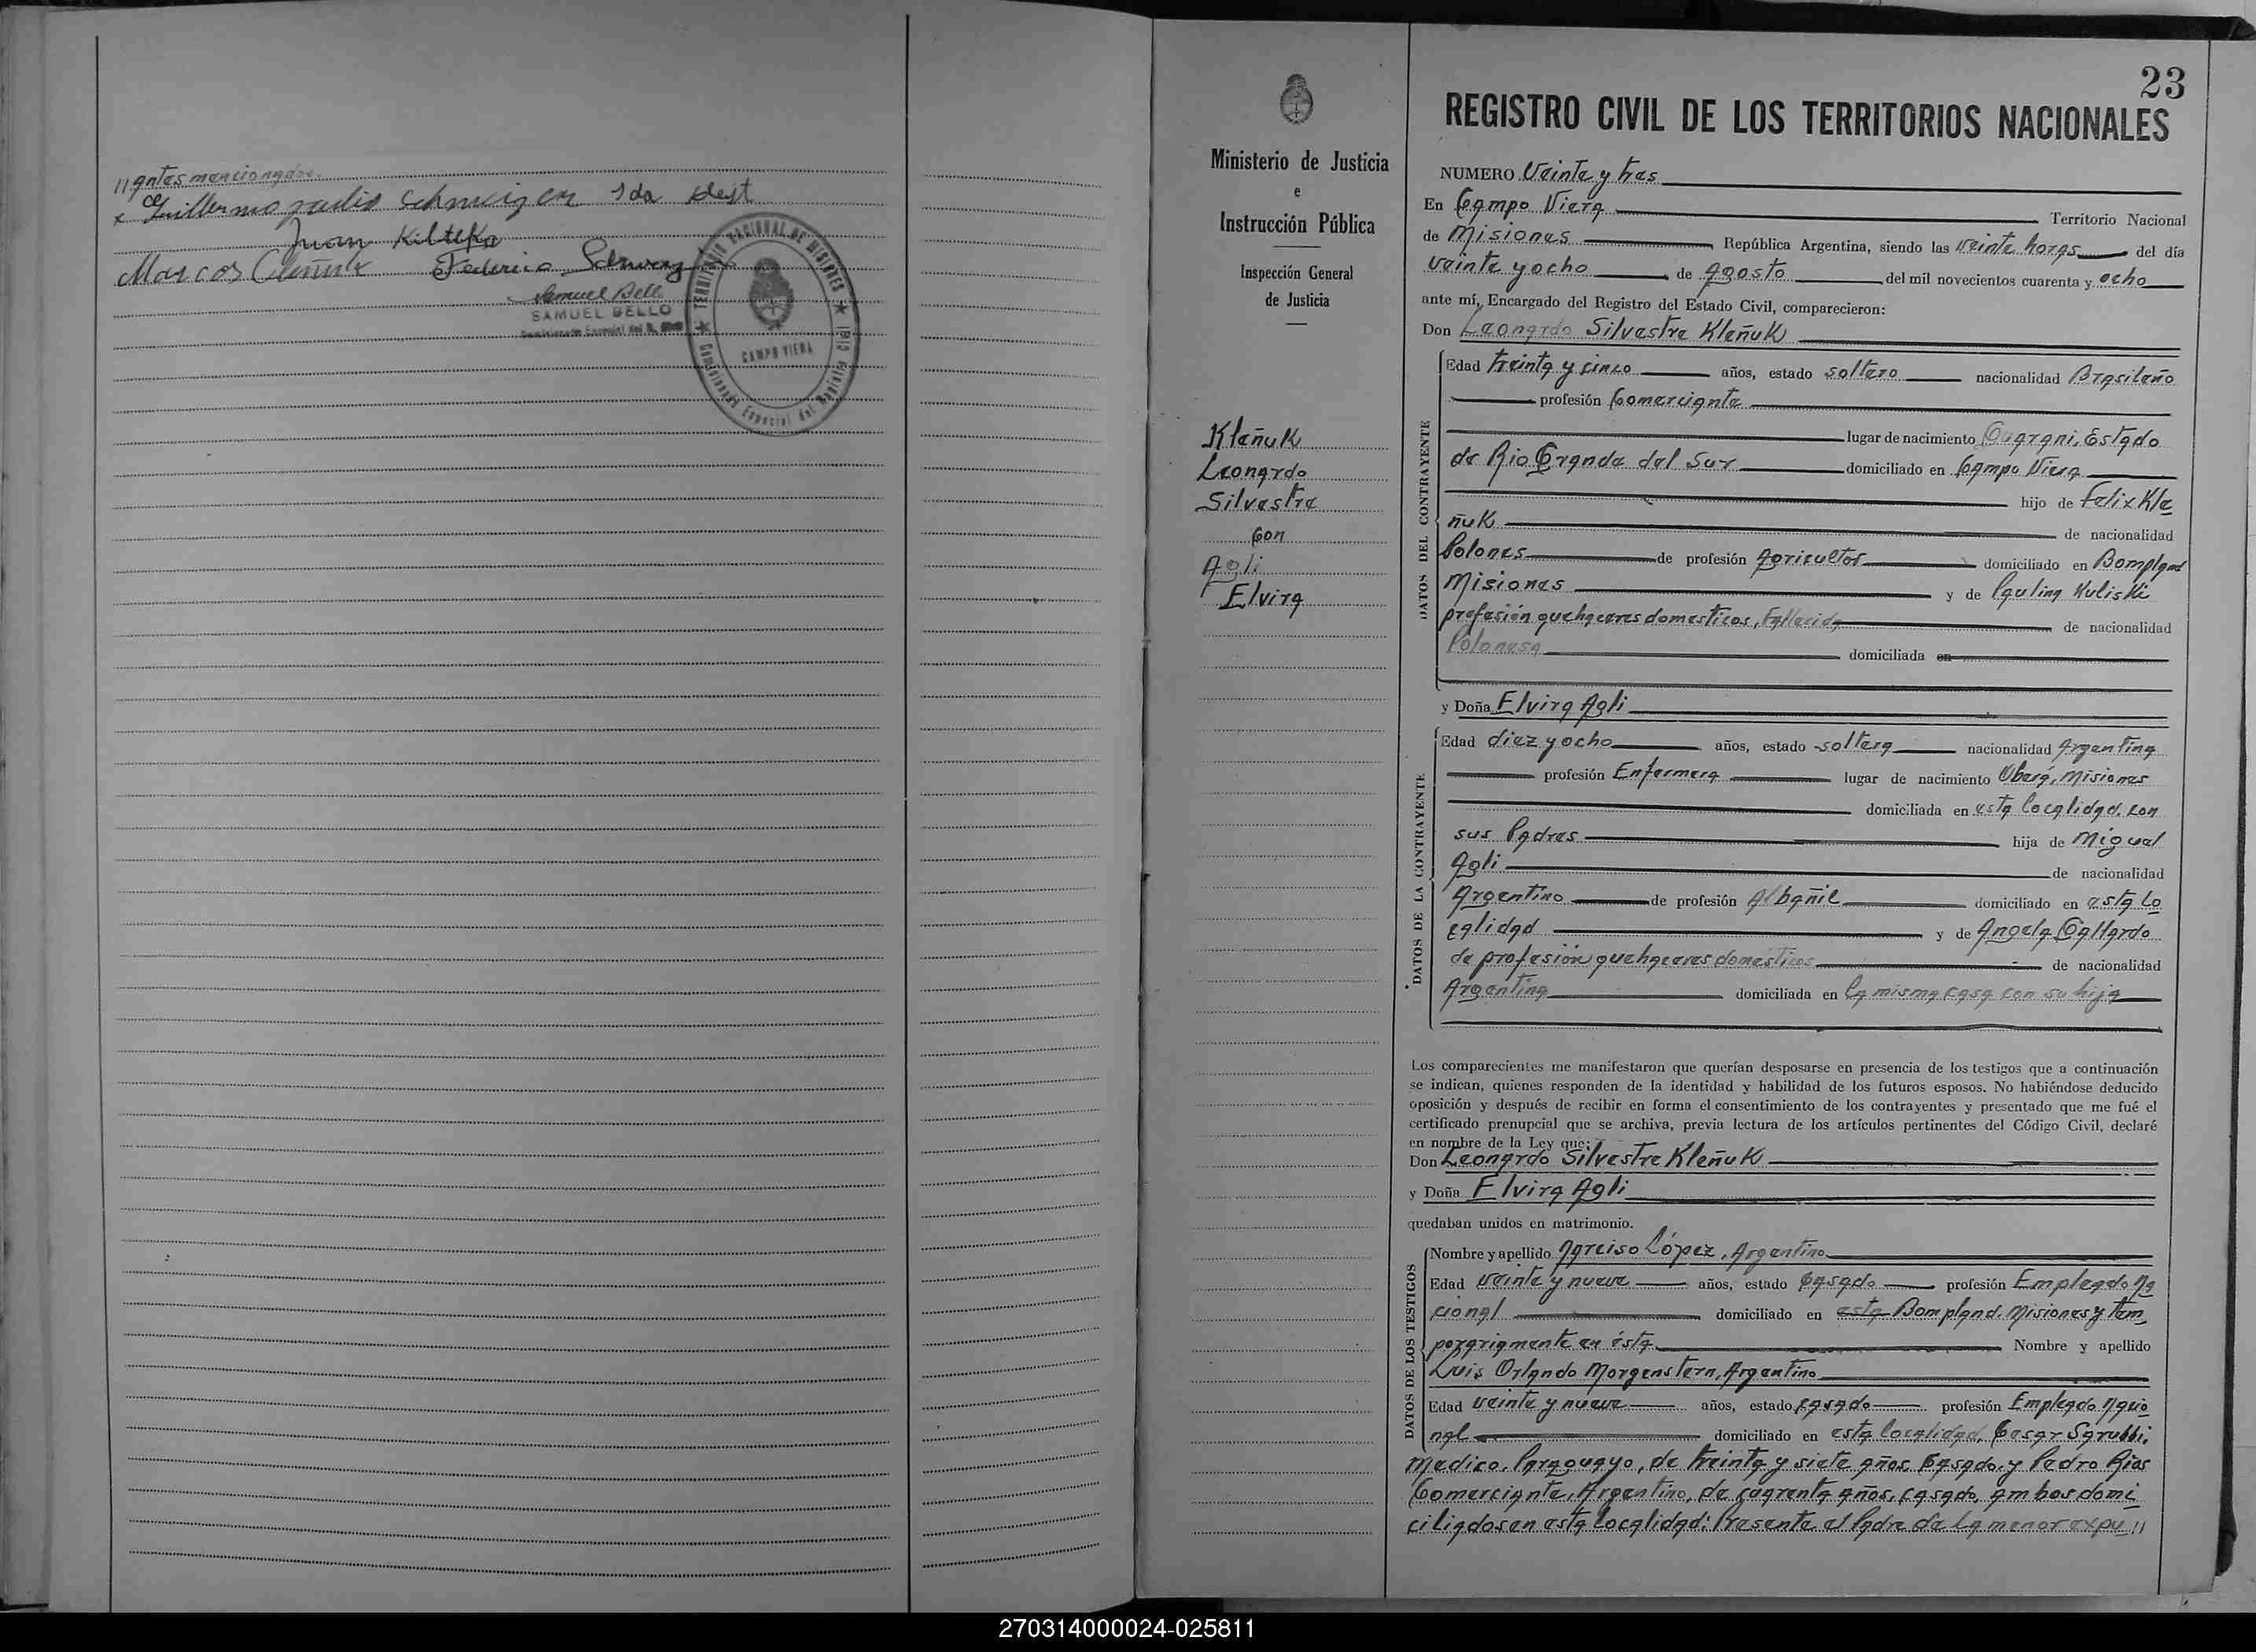 //antes mencionados.
Guillermo Schweizer Ida
Juan Kiltika
Marcos
Federico
Samuel Bello
SAMUEL BELLO
TERRITORIO NACIONAL DE MISIONES
CAMPO VIERA
Comisionado Especial del Registro
Ministerio de Justicia
e
Instrucción Pública
Inspección General
de Justicia
Kleñuk
Leonardo
Silvestre
con
Agli
Elvira
23
REGISTRO CIVIL DE LOS TERRITORIOS NACIONALES
NUMERO Veinte y tres
En Campo Viera Territorio Nacional
de Misiones República Argentina, siendo las veinte horas del día
veinte y ocho de Agosto del mil novecientos cuarenta y ocho
ante mí, Encargado del Registro del Estado Civil, comparecieron:
Don Leonardo Silvestre Kleñuk
DATOS DEL CONTRAYENTE
Edad treinta y cinco años, estado soltero nacionalidad Brasileño
profesión Comerciante
lugar de nacimiento Guarani, Estado
de Rio Grande del Sur domiciliado en Campo Viera
hijo de Felix Kle
ñuk de nacionalidad
Polones de profesión Agricultor domiciliado en Bompland
Misiones y de Paulina Kuliski
profesión quehaceres domesticos, Fallecida de nacionalidad
Polonesa domiciliada en
y Doña Elvira Agli
DATOS DE LA CONTRAYENTE
Edad diez y ocho años, estado soltera nacionalidad Argentina
profesión Enfermera lugar de nacimiento Oberá, Misiones
domiciliada en esta localidad, con
sus Padres hija de Miguel
Agli de nacionalidad
Argentino de profesión Albañil domiciliado en esta lo
calidad y de Angela Gallardo
de profesión quehaceres domesticos de nacionalidad
Argentina domiciliada en la misma casa con su hija
Los comparecientes me manifestaron que querían desposarse en presencia de los testigos que a continuación
se indican, quienes responden de la identidad y habilidad de los futuros esposos. No habiéndose deducido
oposición y después de recibir en forma el consentimiento de los contrayentes y presentado que me fué el
certificado prenupcial que se archiva, previa lectura de los artículos pertinentes del Código Civil, declaré
en nombre de la Ley que:
Don Leonardo Silvestre Kleñuk
y Doña Elvira Agli
quedaban unidos en matrimonio.
DATOS DE LOS TESTIGOS
Nombre y apellido Narciso López, Argentino
Edad veinte y nueve años, estado casado profesión Empleado Na
cional domiciliado en esta Bompland. Misiones y tem
porariamente en ésta Nombre y apellido
Luis Orlando Morgenstern, Argentino
Edad veinte y nueve años, estado casado profesión Empleado Nacio
nal domiciliado en esta localidad, Cesar Sgrubbi,
medico, Paraguayo, de treinta y siete años, casado, y Pedro Rios
Comerciante, Argentino, de cuarenta años, casado, ambos domi
ciliados en esta localidad: Presente el Padre de la menor expu //
270314000024-025811